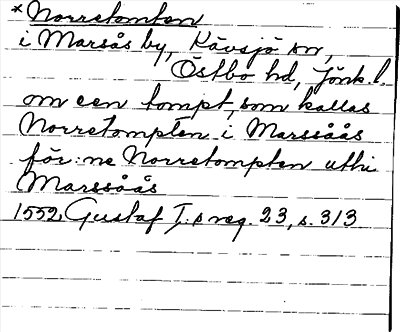 *Norretomten
i Marsås by, Kävsjö sn,
Östbo hd, Jönk. l.
om een tompt, som kallas
Norretompten i Marssåås
för:ne Norretompten uthi
Marssåås
1552, Gustaf I:s reg. 23, s. 313